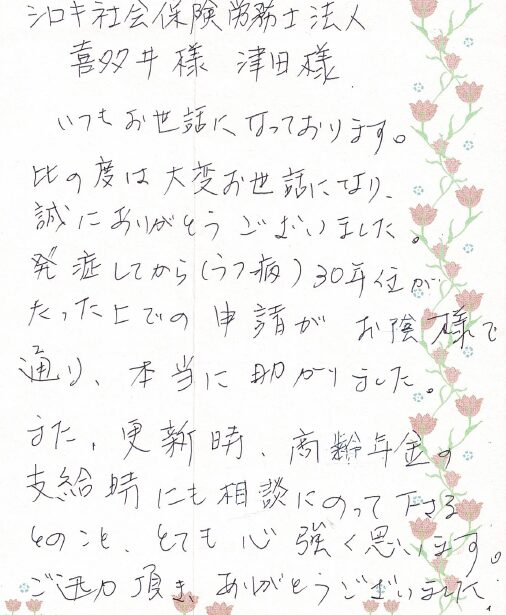 シロキ社会保険労務士法人
喜多井様 津田様
いつもお世話になっております。
比の度は大変お世話になり、
誠にありがとうございました。
発症してから(うつ病)30年位が
たった上での申請がお陰様で
通り、本当に助かりました。
また、更新時、高齢年金の
支給時にも相談にのって下さる
とのこと、とても心強く思います。
ご迅力頂き、ありがとうございました。